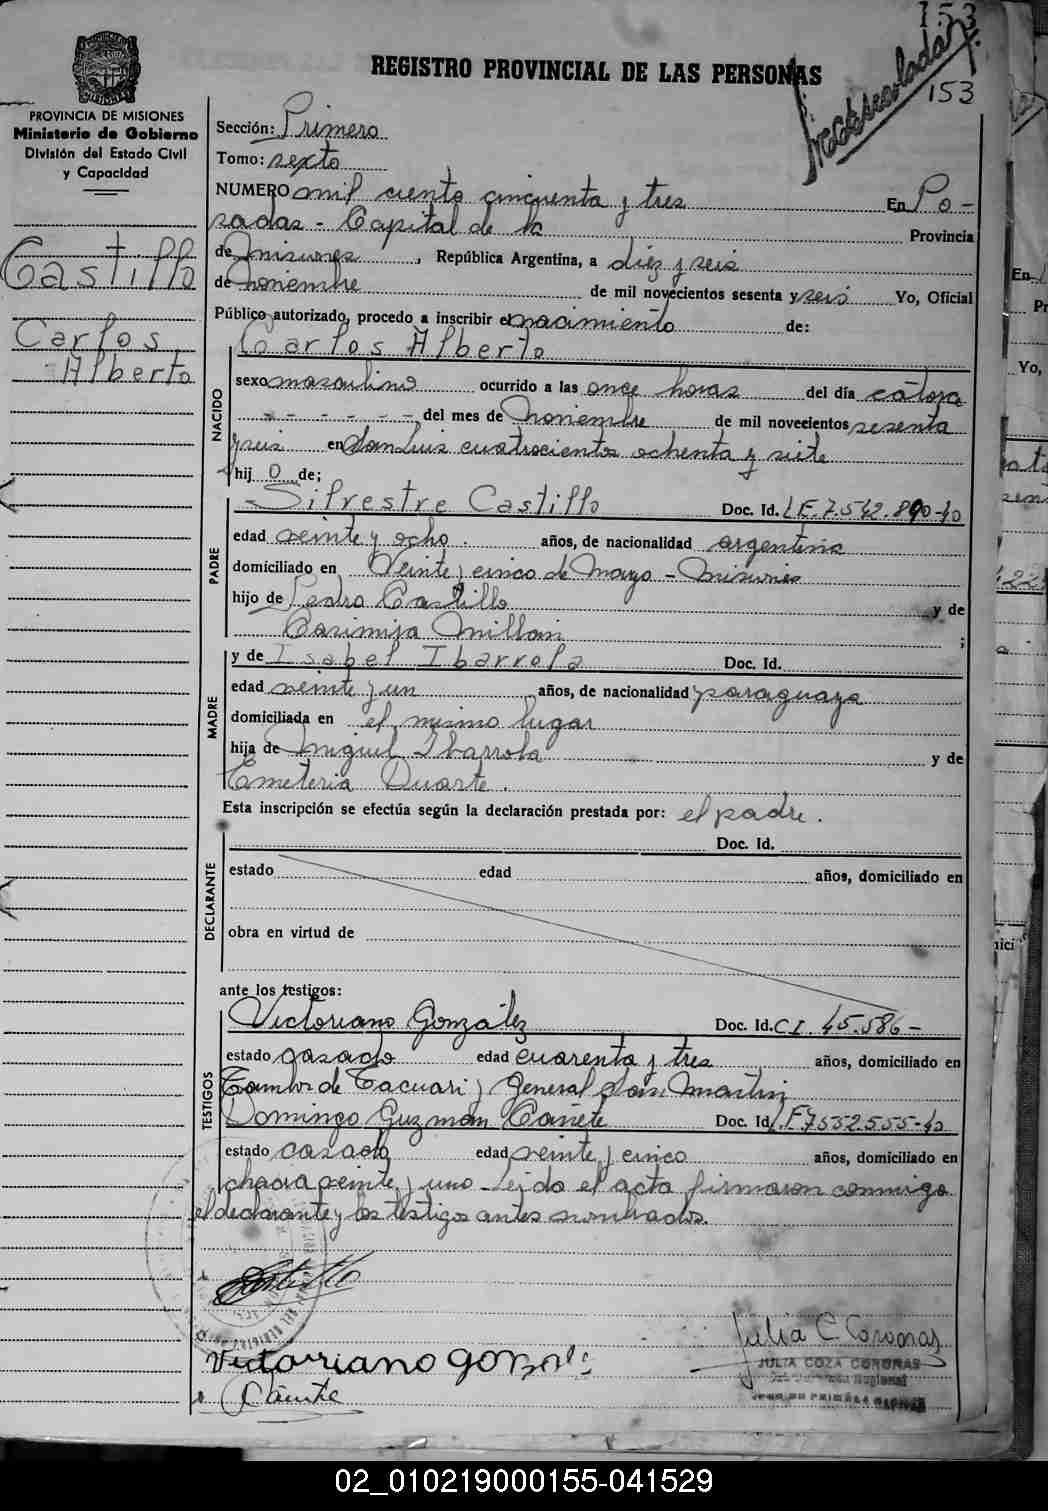 153
153
REGISTRO PROVINCIAL DE LAS PERSONAS
PROVINCIA DE MISIONES
Ministerio de Gobierno
División del Estado Civil
y Capacidad
Castillo
Carlos
Alberto
Sección: Primera
Tomo: sexto
NUMERO mil ciento cincuenta y tres En Po-
sadas - Capital de la Provincia
de Misiones, República Argentina, a diez y seis
de noviembre de mil novecientos sesenta y seis Yo, Oficial
Público autorizado, procedo a inscribir el nacimiento de:
Carlos Alberto
NACIDO
sexo masculino ocurrido a las once horas del día catorce
- - - - - - del mes de noviembre de mil novecientos sesenta
y seis en San Luis cuatrocientos ochenta y siete
hij o de;
PADRE
Silvestre Castillo Doc. Id. LE.7.542.890-40
edad veinte y ocho años, de nacionalidad argentina
domiciliado en Veinte y cinco de Mayo - Misiones
hijo de Pedro Castillo y de
Casimira Millan ;
MADRE
y de Isabel Ibarrola Doc. Id.
edad veinte y un años, de nacionalidad paraguaya
domiciliada en el mismo lugar
hija de Miguel Ibarrola y de
Emeteria Duarte.
Esta inscripción se efectúa según la declaración prestada por: el padre.
DECLARANTE
Doc. Id.
estado edad años, domiciliado en
obra en virtud de
ante los testigos:
TESTIGOS
Victoriano González Doc. Id. C I. 45.586-
estado casado edad cuarenta y tres años, domiciliado en
Tambor de Tacuari y General San Martin
Domingo Guzmán Cañete Doc. Id. LE7552.555-40
estado casado edad veinte y cinco años, domiciliado en
chacra veinte y uno - Leido el acta firmaron conmigo
el declarante y los testigos antes nombrados.
Castillo
Victorriano Gonzalez
Cañete
Julia C. Coronas
JULIA COZA CORONAS
02_010219000155-041529